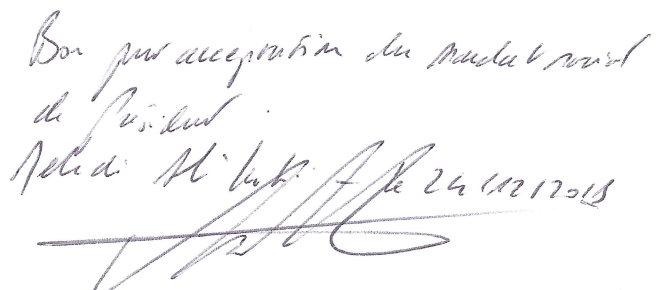 Bon pour acceptation du mandat social
de Président.
Mehdi le 24/12/2018